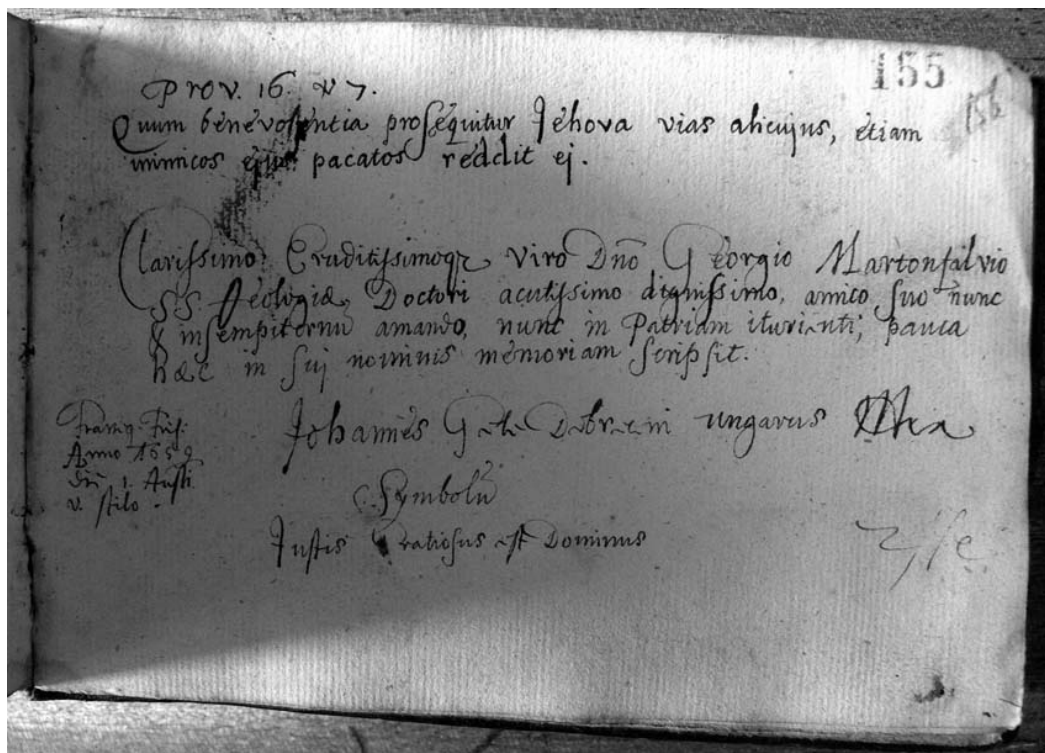 155
156
Prov. 16. v 7.
Quum benevolentia prosequitur Jehova vias alicujus, etiam
inimicos ejus pacatos reddit ej.
Clarissimo Eruditissimoqz viro Dno Georgio Martonfalvio
SS. Teologiæ Doctori acutissimo dignissimo, amico suo nunc
& in sempiternu amando, nunc in Patriam iturienti; pauca
hæc in suj nominis memoriam scripsit.
Johannes Debreceni ungarus
Franeq. Fris.
Anno 1659
die 1. Austi
v. stilo.
Symbolu
Justis Gratiosus est Dominus